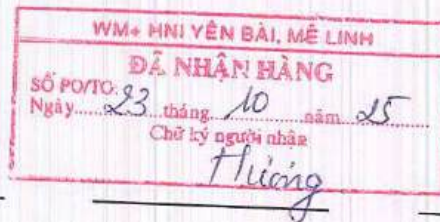 WM+ HNI YÊN BÀI, MÊ LINH
ĐÃ NHẬN HÀNG
SỐ PO/TO:
Ngày 23 tháng 10 năm 25
Chữ ký người nhận
Hương